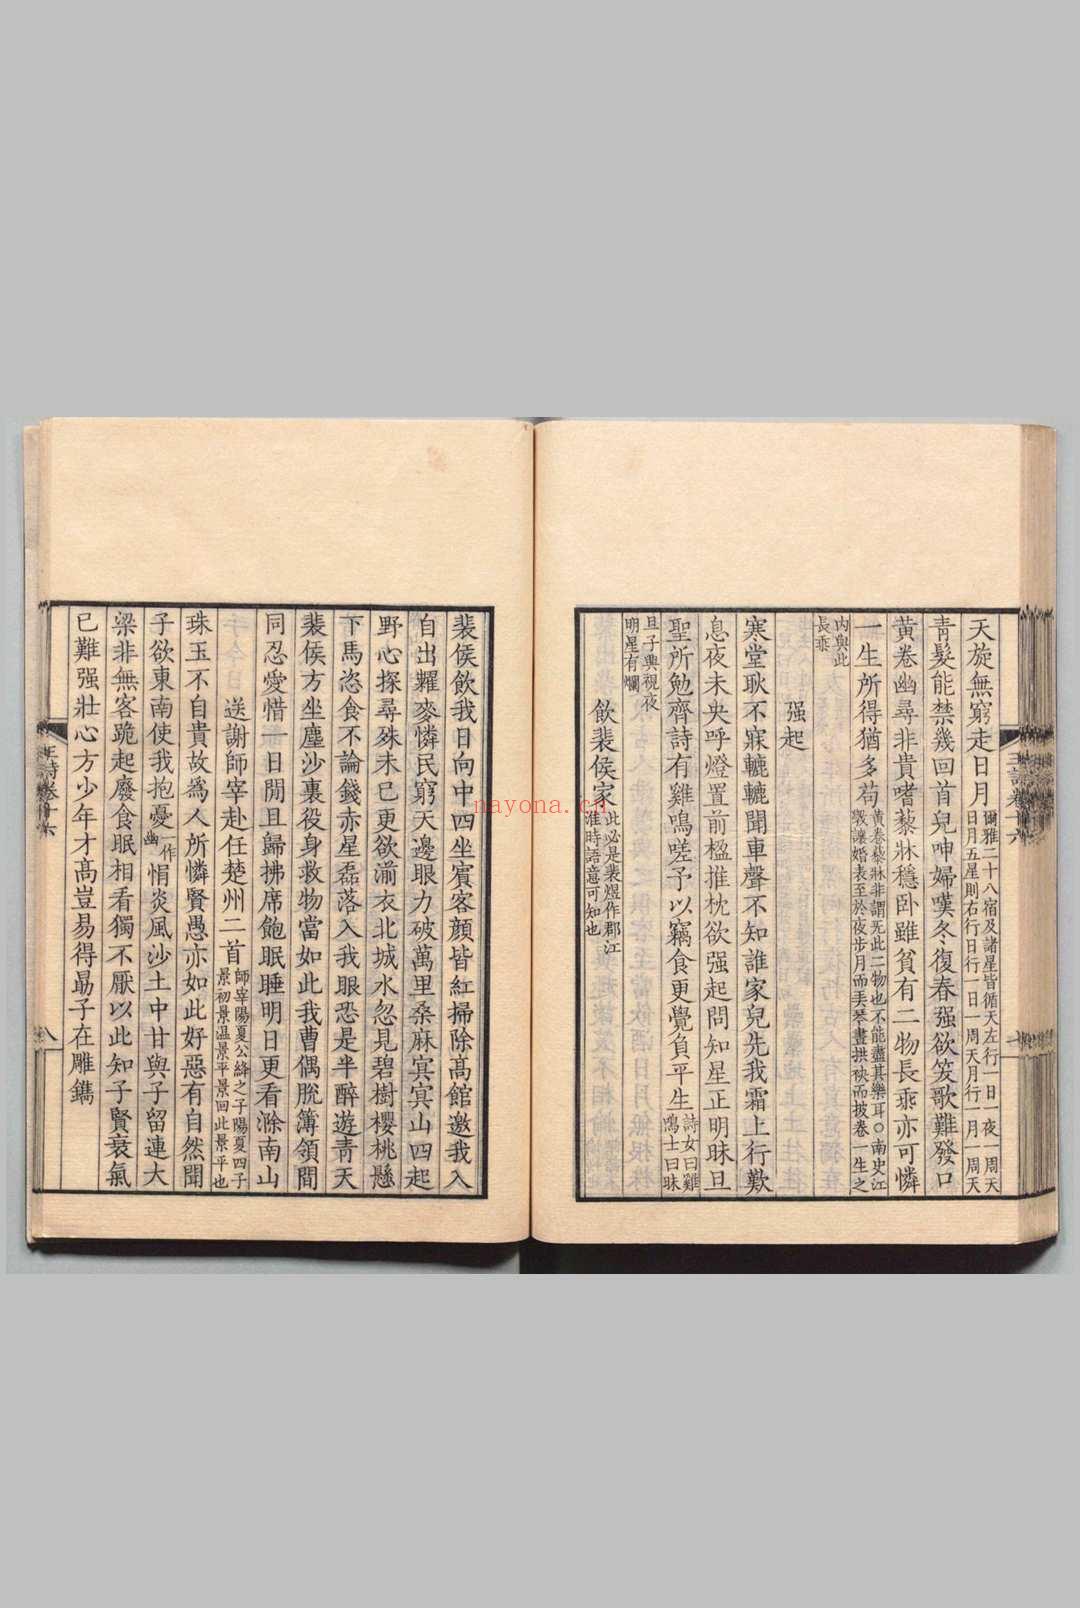 天旋無窮走日月爾雅二十八宿及諸星皆循天左行一日一夜一周天日月五星則右行日行一日一周天月行一月一周天
青髮能禁幾回首兒呻婦嘆冬復春强欲笑歌難發口
黄卷幽尋非貴嗜藜牀穩卧雖貧有二物長乖亦可憐
一生所得猶多苟黄卷藜牀非謂旡此二物也不能盡其樂耳○南史江斆讓婚表至於夜步月而弄琴晝拱袂而披卷一生之
内與此長乖
强起
寒堂耿不寐轆轆聞車聲不知誰家兒先我霜上行歎
息夜未央呼燈置前楹推枕欲强起問知星正明昧旦
聖所勉齊詩有雞鳴嗟予以竊食更覺負平生詩女曰雞鳴士曰昧
旦子興視夜明星有爛
飲裴侯家此必是裴煜作郡江淮時語意可知也
裴侯飲我日向中四坐賓客顔皆紅掃除髙館邀我入
自出糶麥憐民窮天邊眼力破萬里桑麻㝠㝠山四起
野心探尋殊未已更欲湔衣北城水忽見碧樹櫻桃懸
下馬恣食不論錢赤星磊落入我眼恐是半醉遊青天
裴侯方坐塵沙裏役身救物當如此我曹偶脫簿領間
同忍愛惜一日閒且歸拂席飽眠睡明日更看滁南山
送謝師宰赴任楚州二首師宰陽夏公絳之子陽夏四子景初景温景平景回此景平也
珠玉不自貴故為人所憐賢愚亦如此好惡有自然聞
子欲東南使我抱憂一作幽悁炎風沙土中甘與子留連大
梁非無客跪起廢食眠相看獨不厭以此知子賢衰氣
已難强壯心方少年才髙豈易得勗子在雕鐫
王詩卷十六
八
王詩卷十六
nayona.cn